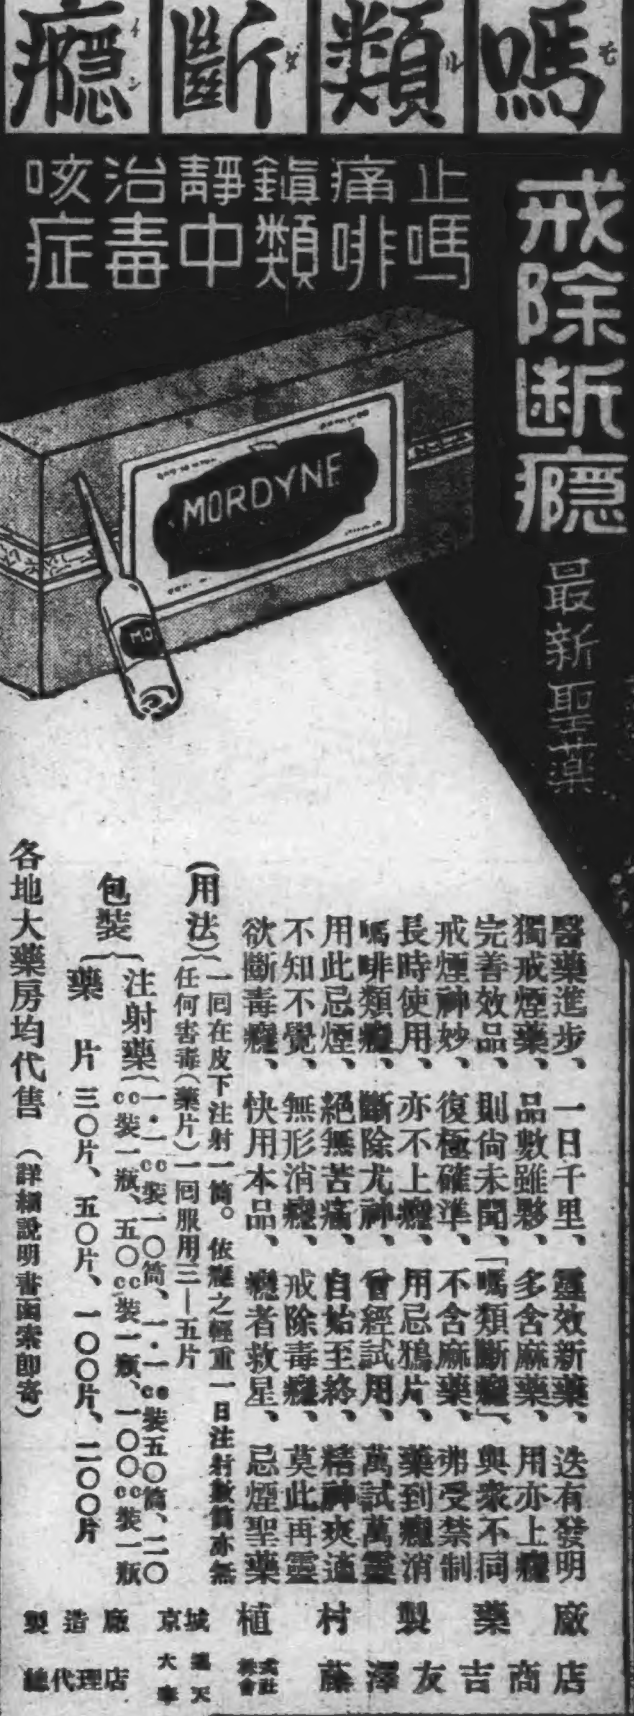 嗎類斷癮
モルダイン
戒除断癮
最新聖藥
止痛鎭靜治咳
嗎啡類中毒症
MORDYNE
MO.
醫藥進步、一日千里、靈效新藥、迭有發明
獨戒煙藥、品數雖夥、多含麻藥、用亦上癮
完善效品、則尙未聞、「嗎類斷癮」、與衆不同
戒煙神妙、復極確準、不含麻藥、弗受禁制
長時使用、亦不上癮、用忌鴉片、藥到癮消
嗎啡類癮、斷除尤神、曾經試用、萬試萬靈
用此忌煙、絕無苦痛、自始至終、精神爽適
不知不覺、無形消癮、戒除毒癮、莫此再靈
欲斷毒癮、快用本品、癮者救星、忌煙聖藥
(用法)
一回在皮下注射一筒。依癮之輕重一日注射數筒亦無
任何害毒(藥片)一回服用三—五片
包裝
注射藥
一・一cc裝一〇筒、一・一cc裝五〇筒、二〇
cc裝一瓶、五〇cc裝一瓶、一〇〇cc裝一瓶
藥片 三〇片、五〇片、一〇〇片、二〇〇片
各地大藥房均代售(詳細說明書函索即寄)
製造廠 京城 植村製藥廠
總代理店 大奉天 株式會社 藤澤友吉商店